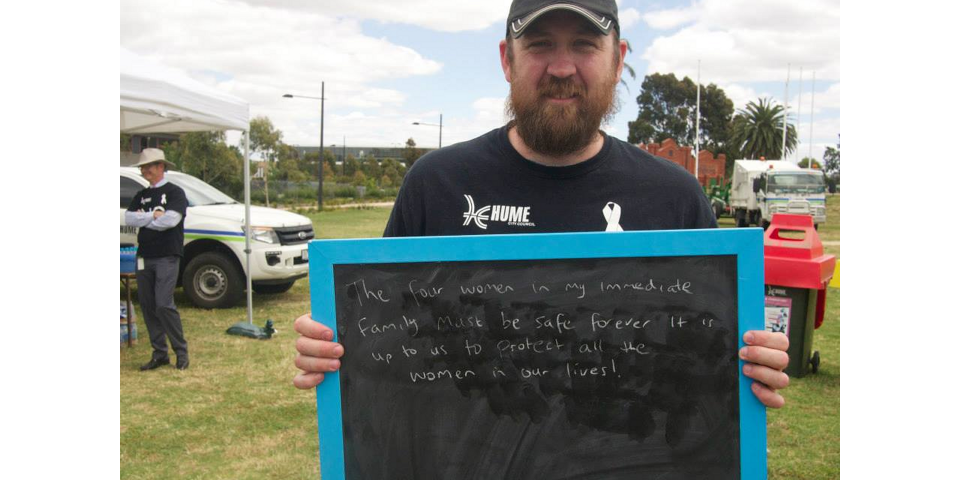 HUME
CITY COUNCIL
The four women in my immediate
family must be safe forever It is
up to us to protect all the
women in our lives!.